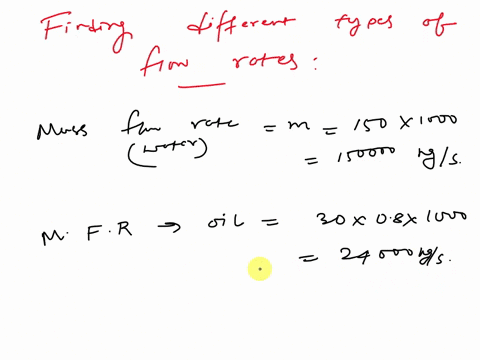 Finding different types of
flow rates:
Mass flow rate = m = 150 × 1000
(water)
= 150000 kg/s.
M. F. R → oil = 30 × 0.8 × 1000
= 24000 kg/s.